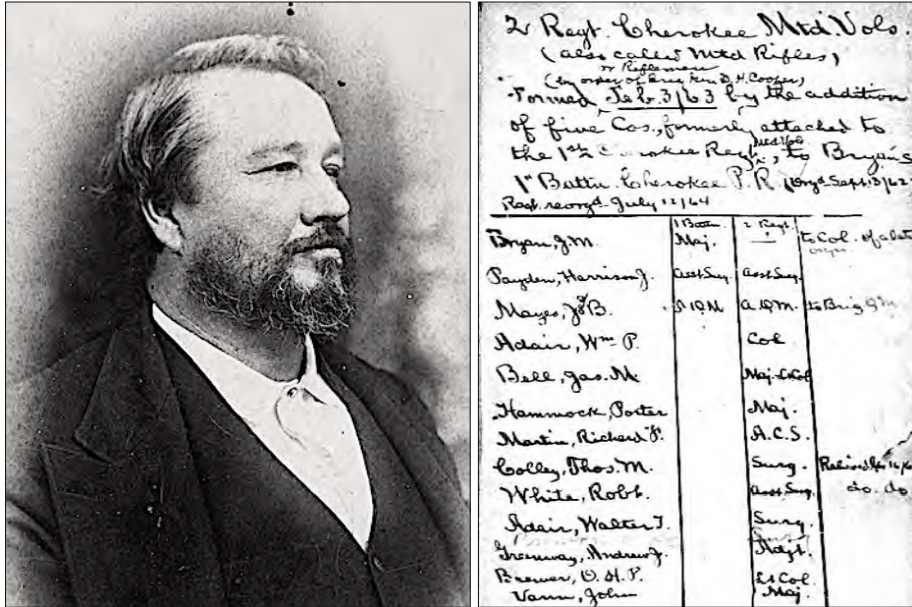 2 Regt. Cherokee Mtd. Vols.
(also called Mtd Rifles,
or Riflemen
(by order of Brig Gen D. H. Cooper)
Formed Feb. 3/63 by the addition
of five Cos., formerly attached to
the 1st Cherokee Regt, Mtd Vols, to Bryan's
1st Battn. Cherokee P. R. (Orgd Sept. 13/62.
Regt. reorgd July 12/64
1 Battn. 2 Regt.
Bryan, J. M. Maj. to Col. of
Payden, Harrison J. Asst Surg. Asst Surg.
Mayes, B. A. Q. M. to Brig Q M
Adair, Wm P. Col
Bell, Jas. M. Maj. Lt Col
Hammock, Porter Maj.
Martin, Richard F. A. C. S.
Colley, Thos. M. Surg.
White, Robt. Asst. Surg. do. do
Adair, Walter T. Surg.
Greenway, Andrew J. Adjt.
Brewer, O. H. P. Lt Col
Vann, John Maj.